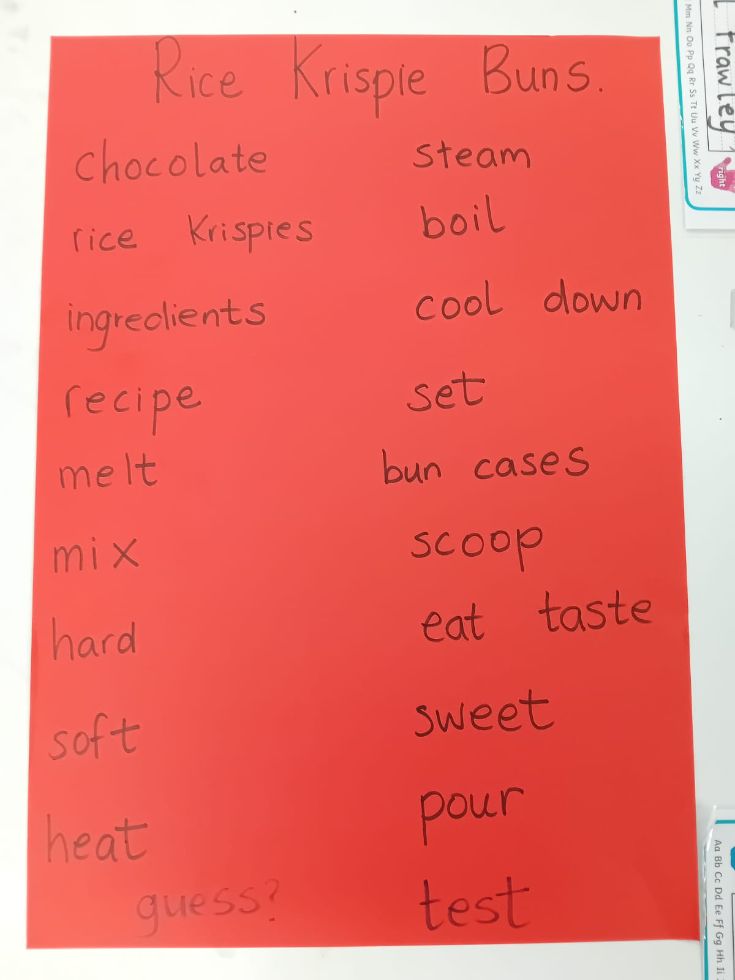 Rice Krispie Buns.
chocolate
rice Krispies
ingredients
recipe
melt
mix
hard
soft
heat
guess?
steam
boil
cool down
set
bun cases
scoop
eat taste
sweet
pour
test
Mm Nn Oo Pp Qq Rr Ss Tt Uu Vv Ww Xx Yy Zz
right
Aa Bb Cc Dd Ee Ff Gg Hh Ii